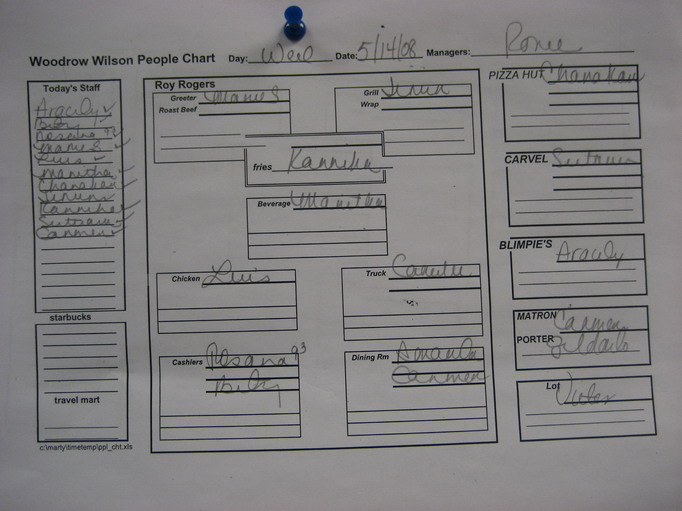 Woodrow Wilson People Chart Day: Wed Date: 5/14/08 Managers: Renee
Today's Staff
Aracily
Biby
Rosana 93
Mamie S
Luis
Manitha
Chanakan
Kannika
Carmen
starbucks
travel mart
c:\marty\timetemp\ppl_cht.xls
Roy Rogers
Greeter Mamie S
Roast Beef
Grill
Wrap
fries Kannika
Beverage Manitha
Chicken Luis
Truck
Cashiers Rosana 93
Biby
Dining Rm Amanda
Carmen
PIZZA HUT Chanakan
CARVEL
BLIMPIE'S Aracily
MATRON Carmen
PORTER
Lot Victor